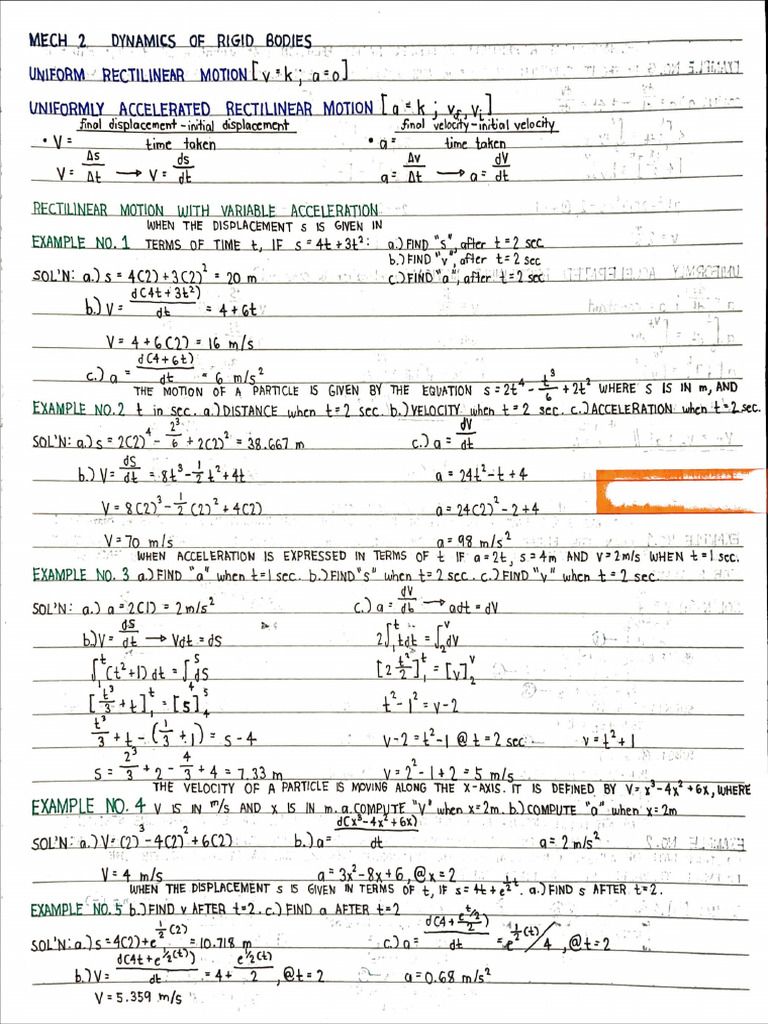 MECH 2 DYNAMICS OF RIGID BODIES
UNIFORM RECTILINEAR MOTION [v=k; a=0]
UNIFORMLY ACCELERATED RECTILINEAR MOTION [a=k; vf, vi]
• V = final displacement - initial displacement / time taken • a = final velocity - initial velocity / time taken
V = Δs/Δt → V = ds/dt a = Δv/Δt → a = dV/dt
RECTILINEAR MOTION WITH VARIABLE ACCELERATION
WHEN THE DISPLACEMENT S IS GIVEN IN
EXAMPLE NO. 1 TERMS OF TIME t, IF s = 4t + 3t²: a.) FIND "s", after t = 2 sec
b.) FIND "v", after t = 2 sec
SOL'N: a.) s = 4(2) + 3(2)² = 20 m c.) FIND "a", after t = 2 sec
b.) V = d(4t + 3t²)/dt = 4 + 6t
V = 4 + 6(2) = 16 m/s
c.) a = d(4+6t)/dt = 6 m/s²
THE MOTION OF A PARTICLE IS GIVEN BY THE EQUATION s = 2t⁴ - t³/6 + 2t² WHERE S IS IN m, AND
EXAMPLE NO. 2 t in sec. a.) DISTANCE when t = 2 sec. b.) VELOCITY when t = 2 sec. c.) ACCELERATION when t = 2 sec.
SOL'N: a.) s = 2(2)⁴ - 2³/6 + 2(2)² = 38.667 m c.) a = dV/dt
b.) V = ds/dt = 8t³ - 1/2 t² + 4t a = 24t² - t + 4
V = 8(2)³ - 1/2 (2)² + 4(2) a = 24(2)² - 2 + 4
V = 70 m/s a = 98 m/s²
WHEN ACCELERATION IS EXPRESSED IN TERMS OF t IF a = 2t, s = 4m AND V = 2m/s WHEN t = 1 sec.
EXAMPLE NO. 3 a.) FIND "a" when t = 1 sec. b.) FIND "s" when t = 2 sec. c.) FIND "v" when t = 2 sec.
SOL'N: a.) a = 2(1) = 2 m/s² c.) a = dV/db → adt = dV
b.) V = ds/dt → Vdt = dS 2∫₁ᵗ tdt = ∫₂ᵛ dV
∫₁ᵗ (t² + 1) dt = ∫₄ˢ dS [2 t²/2]₁ᵗ = [v]₂ᵛ
[t³/3 + t]₁ᵗ = [s]₄ˢ t² - 1² = v - 2
t³/3 + t - (1/3 + 1) = s - 4 v - 2 = t² - 1 @ t = 2 sec v = t² + 1
s = 2³/3 + 2 - 4/3 + 4 = 7.33 m v = 2² - 1 + 2 = 5 m/s
THE VELOCITY OF A PARTICLE IS MOVING ALONG THE X-AXIS. IT IS DEFINED BY V = x³ - 4x² + 6x, WHERE
EXAMPLE NO. 4 V IS IN m/s AND X IS IN m. a. COMPUTE "V" when x = 2m. b.) COMPUTE "a" when x = 2m
SOL'N: a.) V = (2)³ - 4(2)² + 6(2) b.) a = d(x³ - 4x² + 6x)/dt a = 2 m/s²
V = 4 m/s a = 3x² - 8x + 6, @ x = 2
WHEN THE DISPLACEMENT S IS GIVEN IN TERMS OF t, IF s = 4t + e^½t. a.) FIND s AFTER t = 2.
EXAMPLE NO. 5 b.) FIND v AFTER t = 2. c.) FIND a AFTER t = 2
SOL'N: a.) s = 4(2) + e^½(2) = 10.718 m c.) a = d(4 + e^t/2 / 2)/dt = e^½(t)/4, @ t = 2
b.) V = d(4t + e^½(t))/dt = 4 + e^½(t)/2, @ t = 2 a = 0.68 m/s²
V = 5.359 m/s